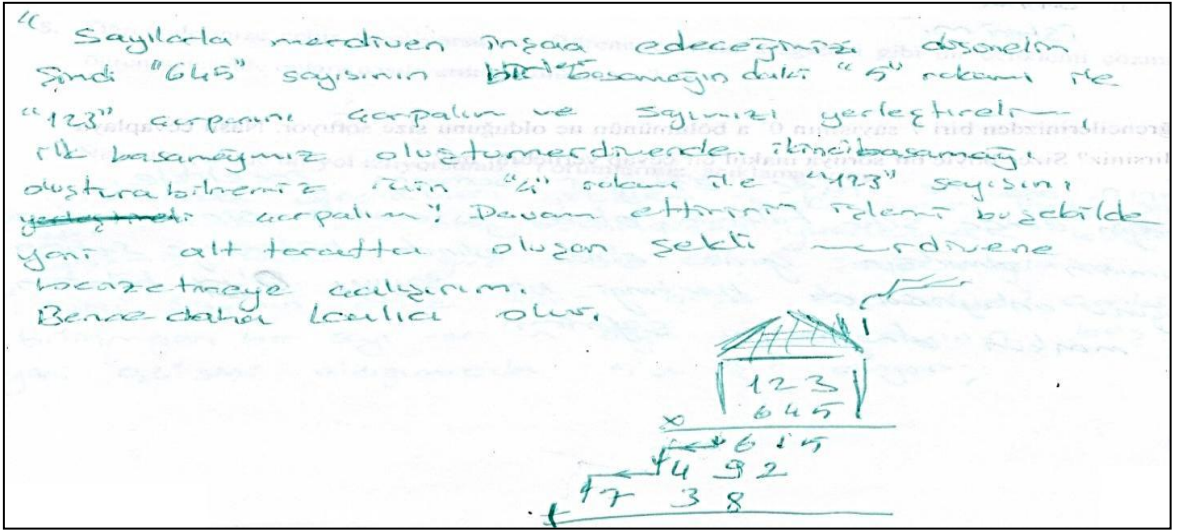 "Sayılarla merdiven inşaa edeceğimizi düşünelim
Şimdi "645" sayısının birler basamağındaki "5" rakamı ile
"123" çarpanını çarpalım ve sayımızı yerleştirelim
ilk basamağımız oluştu merdivenden ikinci basamağı
oluşturabilmemiz için "4" rakamı ile "123" sayısını
çarpalım! Devam ettiririm işlemi bu şekilde
yani alt tarafta oluşan şekli merdivene
benzetmeye çalışırım.
Bence daha kalıcı olur.
123
645
x
615
492
738